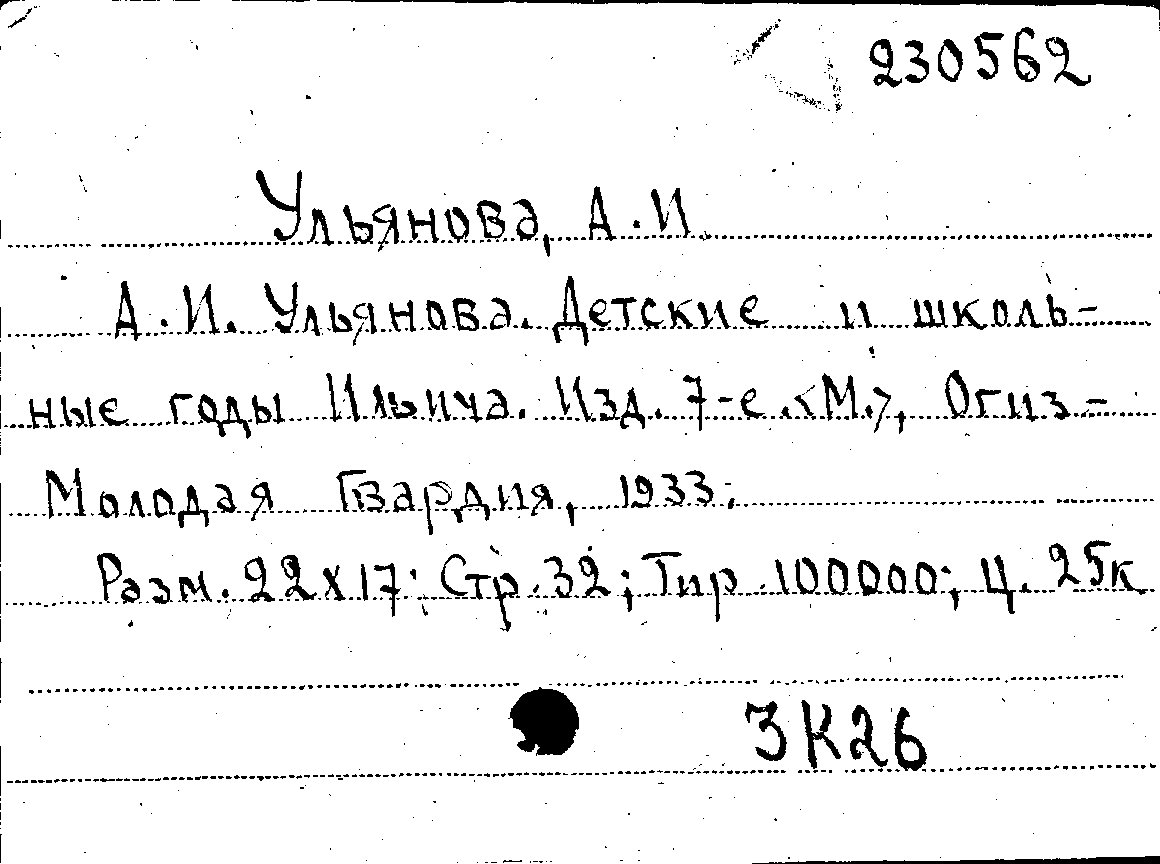 230562
Ульянова, А.И.
А.И. Ульянова. Детские и школь-
ные годы Ильича. Изд. 7-е. <М.>, Огиз-
Молодая Гвардия, 1933.
Разм. 22х17; Стр. 32; Тир. 100000; Ц. 25к
3К26